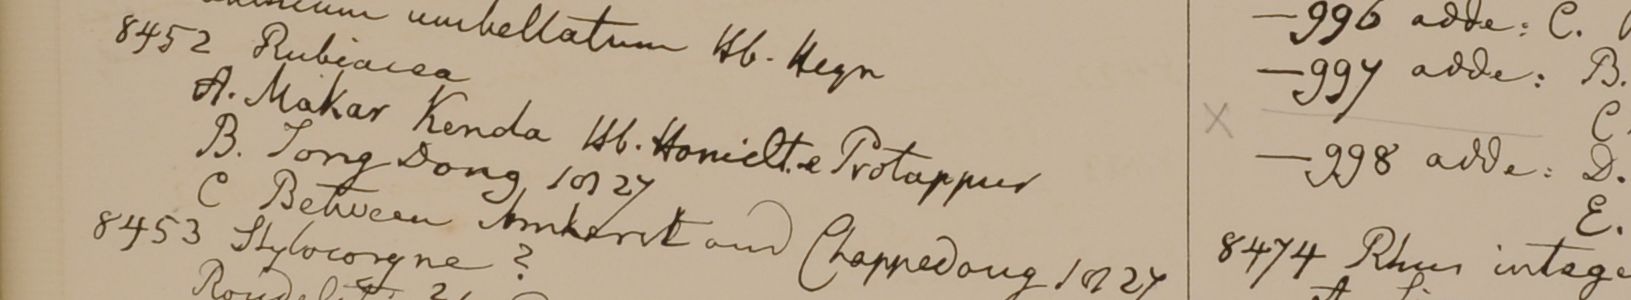 umbellatum Hb. Heyn
8452 Rubiacea
A. Makar Kenda Hb. Hamilt. e Protappur
B. Tong Dong 1827
C Between Amherst and Chappedong 1827
8453 Stylocoryne ?
—996 adde: C.
—997 adde: B.
C.
—998 adde: D.
E.
8474 Rhus integ